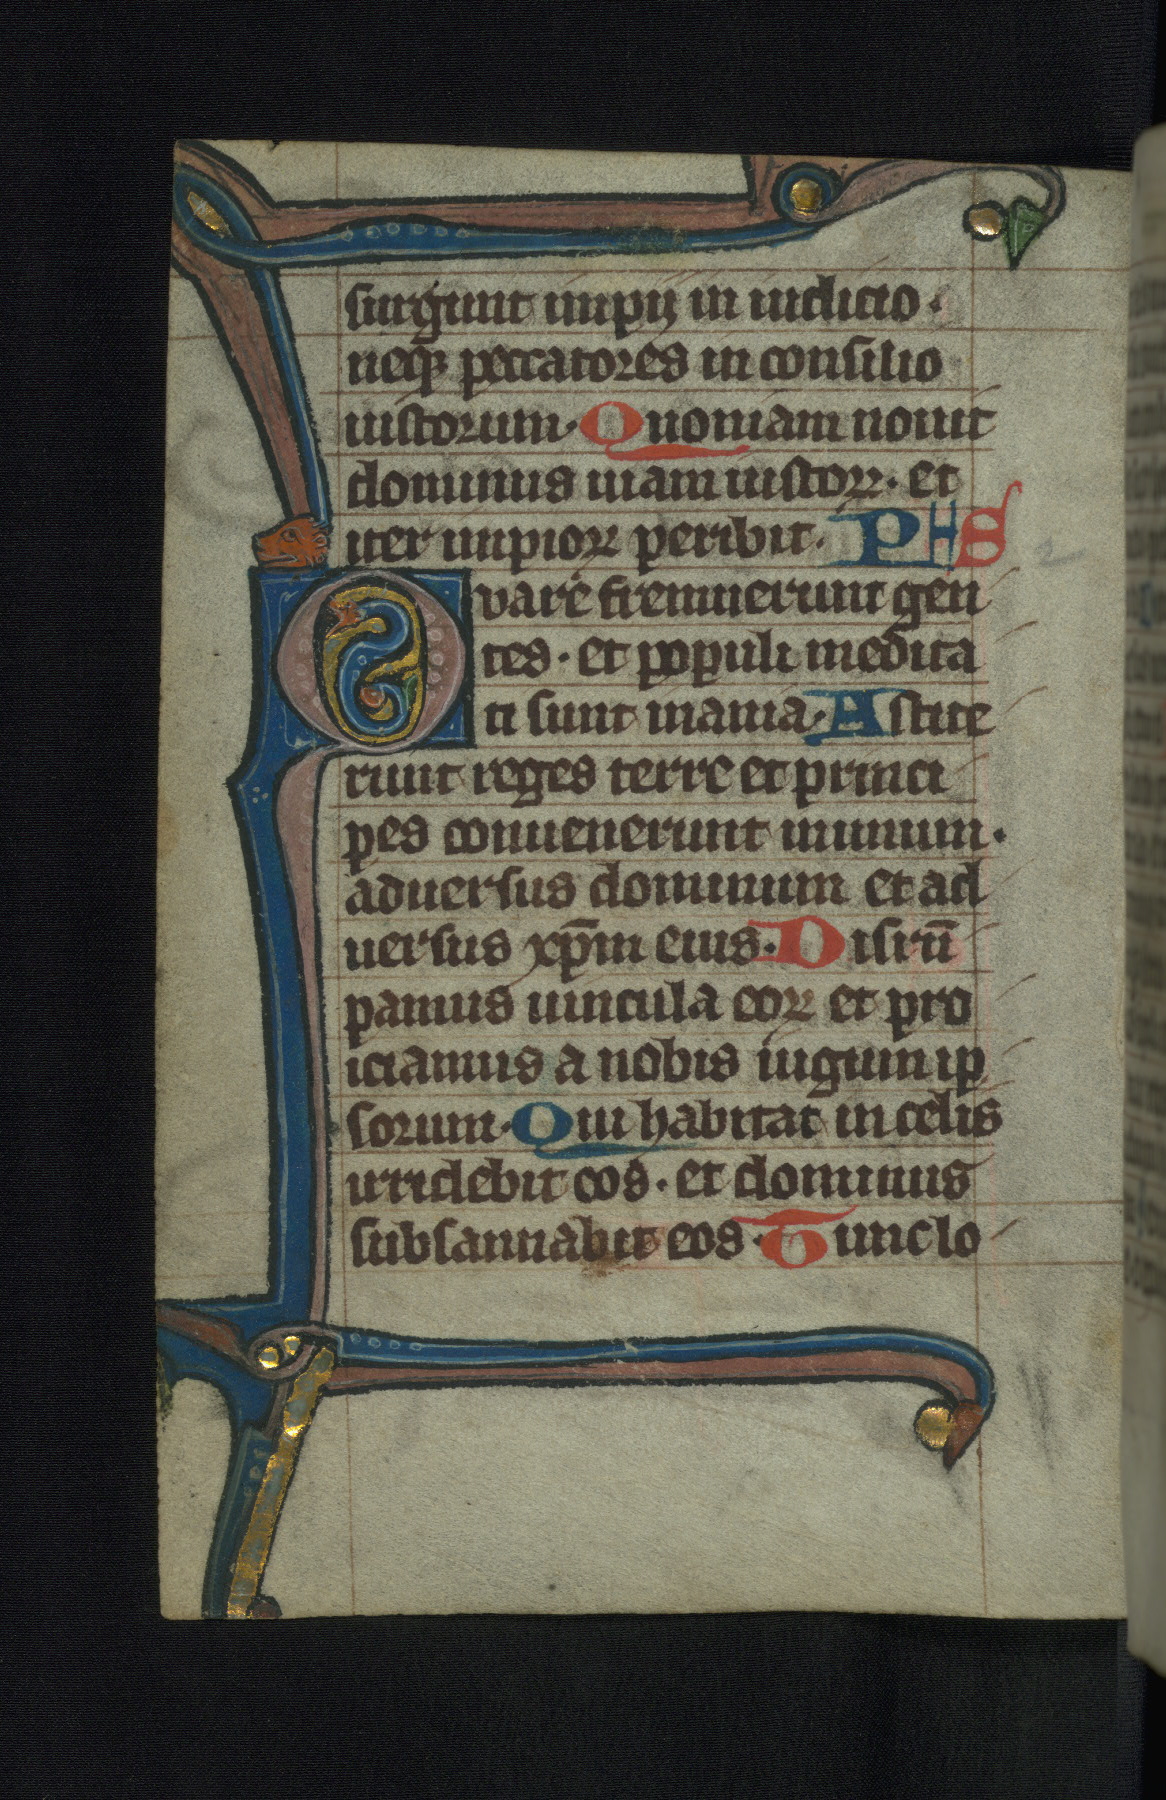 surgunt impij in iudicio.
neq; peccatores in consilio
iustorum. Quoniam nouit
dominus uiam iustoꝝ. et
iter impioꝝ peribit. PHS
Quare fremuerunt gen
tes. et populi medita
ti sunt inania. Astite
runt reges terre et princi
pes conuenerunt inunum.
aduersus dominum et ad
uersus xp̄m eius. Disrū
pamus uincula eoꝝ et pro
iciamus a nobis iugum ip
sorum. Qui habitat in celis
irridebit eos. et dominus
subsannabit eos. Tunc lo